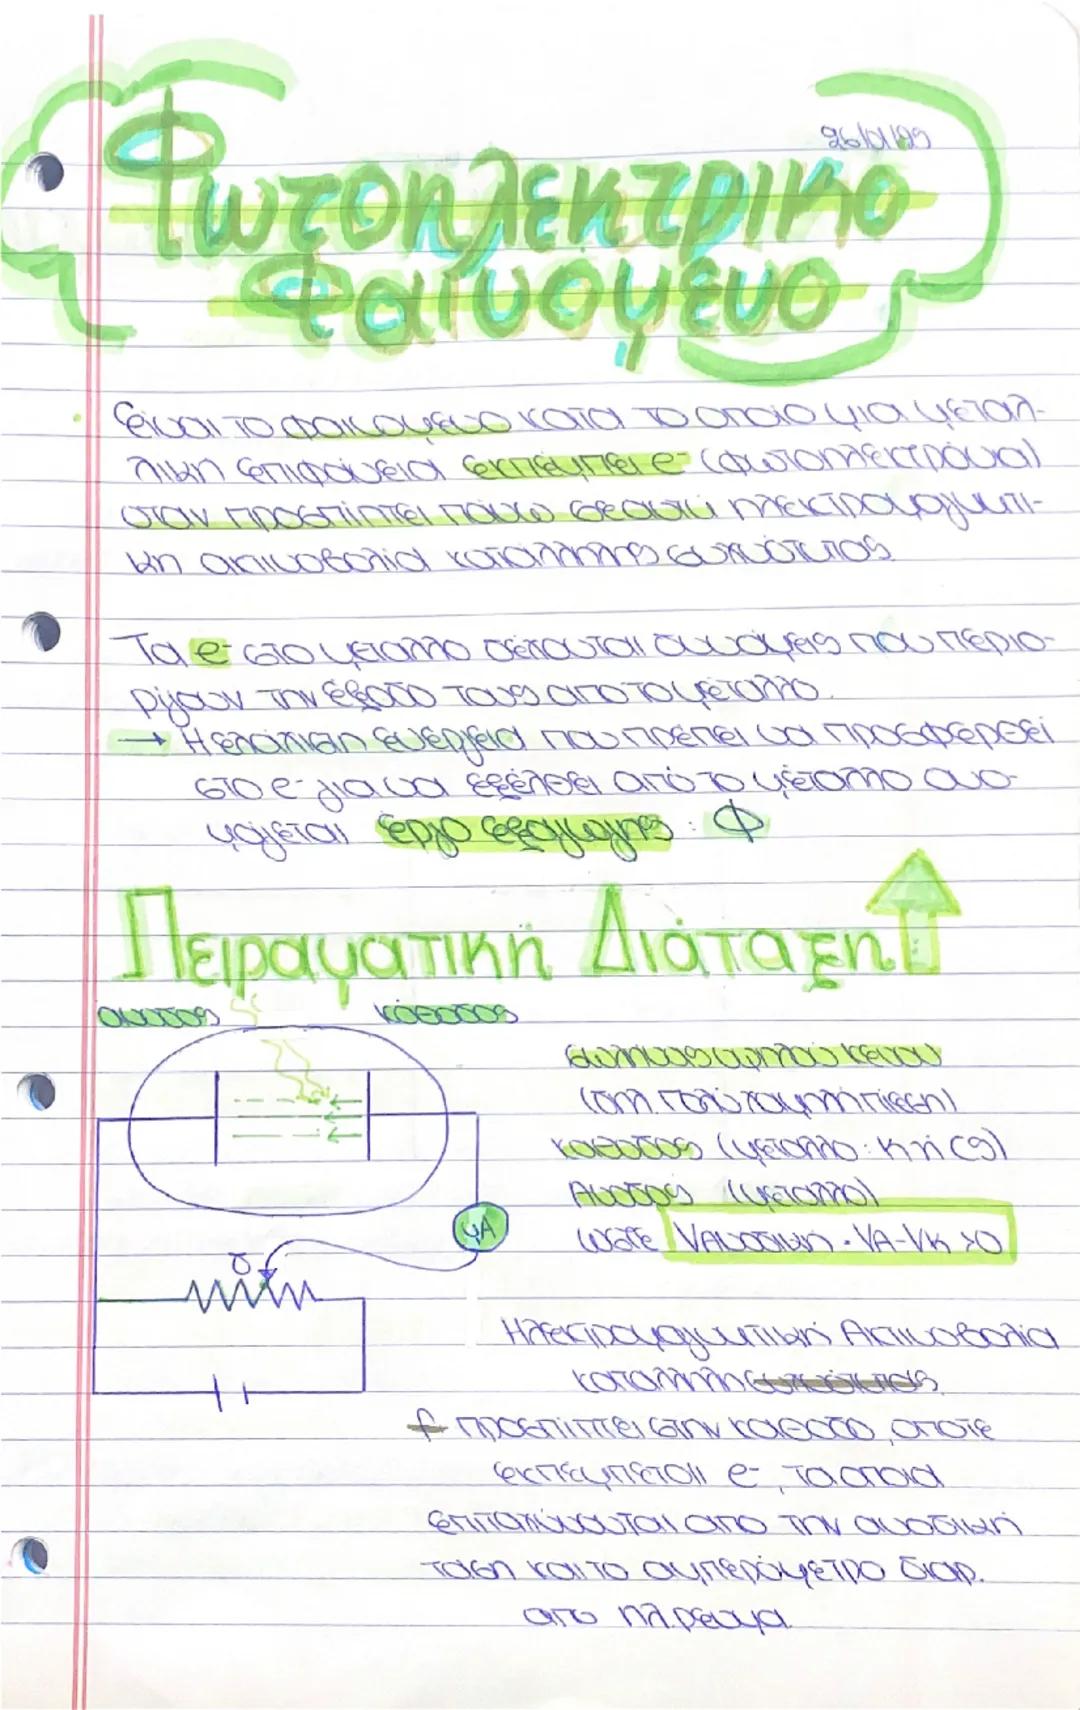 26/01/23
Φωτοηλεκτρικο
Φαινομενο
Είναι το φαινομενο κατα το οποιο μια μεταλ-
λικη επιφάνεια εκπέμπει e- (φωτοηλεκτρόνια)
οταν προσπίπτει πάνω σε αυτή ηλεκτρομαγνητι-
κη ακτινοβολία κατάλληλης συχνότητας
Τα e- στο μεταλλο δέχονται δυνάμεις που περιο-
ρίζουν την έξοδο τους απο το μέταλλο.
→ Η ελάχιστη ενέργεια που πρέπει να προσφερθεί
στο e- για να εξέλθει από το μέταλλο ονο-
μάζεται έργο εξαγωγής : Φ
Πειραματικη Διάταξη
ανοδος κάθοδος
σωληνας υψηλού κενου
(δηλ. πολύ χαμηλη πίεση)
καθοδος (μεταλλο: K ή Cs)
Ανοδος (μεταλλο)
ώστε Vανοδικη = VA-VK >0
μA
δ
Ηλεκτρομαγνητικη Ακτινοβολία
καταλληλη συχνότητας
f προσπίπτει στην καθοδο, οποτε
εκπέμπεται e-, τα οποια
επιταχύνονται απο την ανοδικη
τάση και το αμπερόμετρο διαρ.
απο ηλ.ρευμα